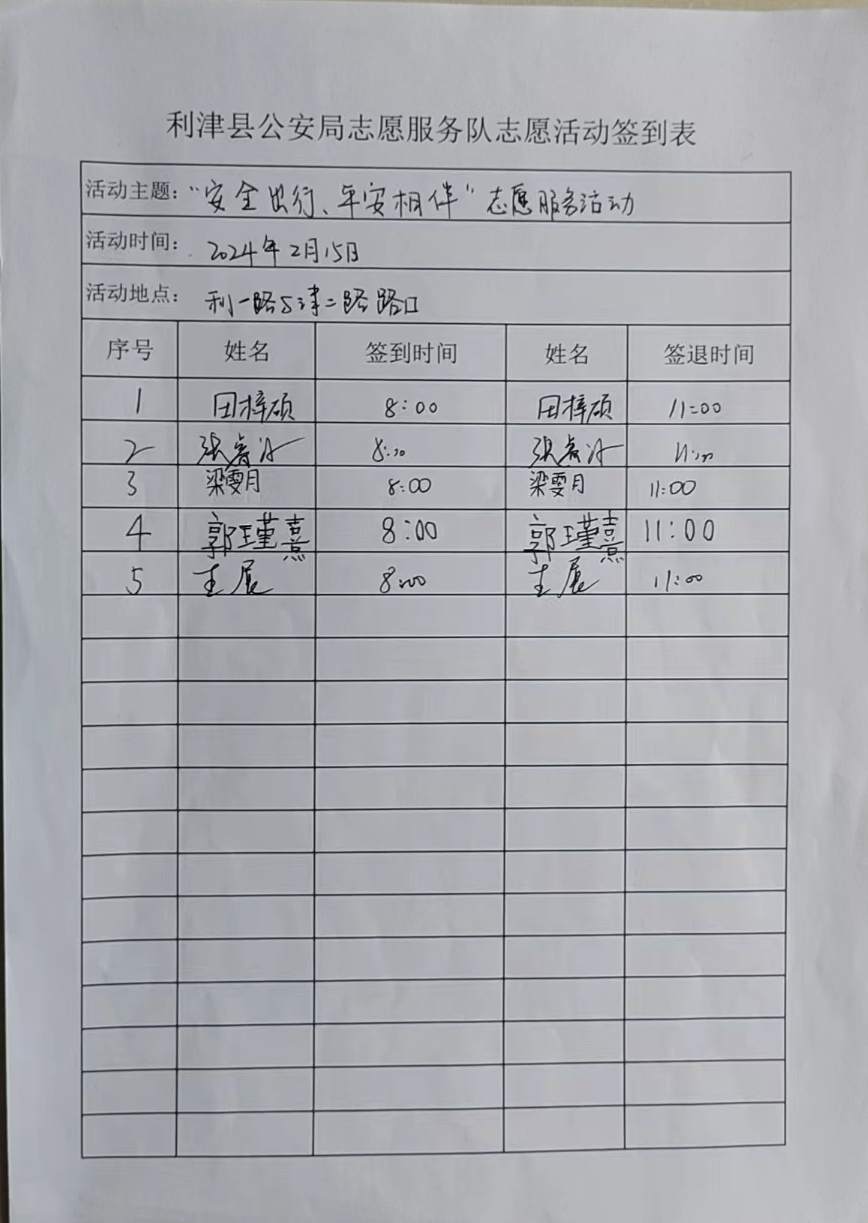 利津县公安局志愿服务队志愿活动签到表
活动主题："安全出行、平安相伴"志愿服务活动
活动时间：2024年2月15日
活动地点：利一路与津二路路口
序号 姓名 签到时间 姓名 签退时间
1 田梓硕 8:00 田梓硕 11:00
2 张 8:00 张 11:00
3 梁雯月 8:00 梁雯月 11:00
4 郭瑾熹 8:00 郭瑾熹 11:00
5 展 8:00 展 11:00